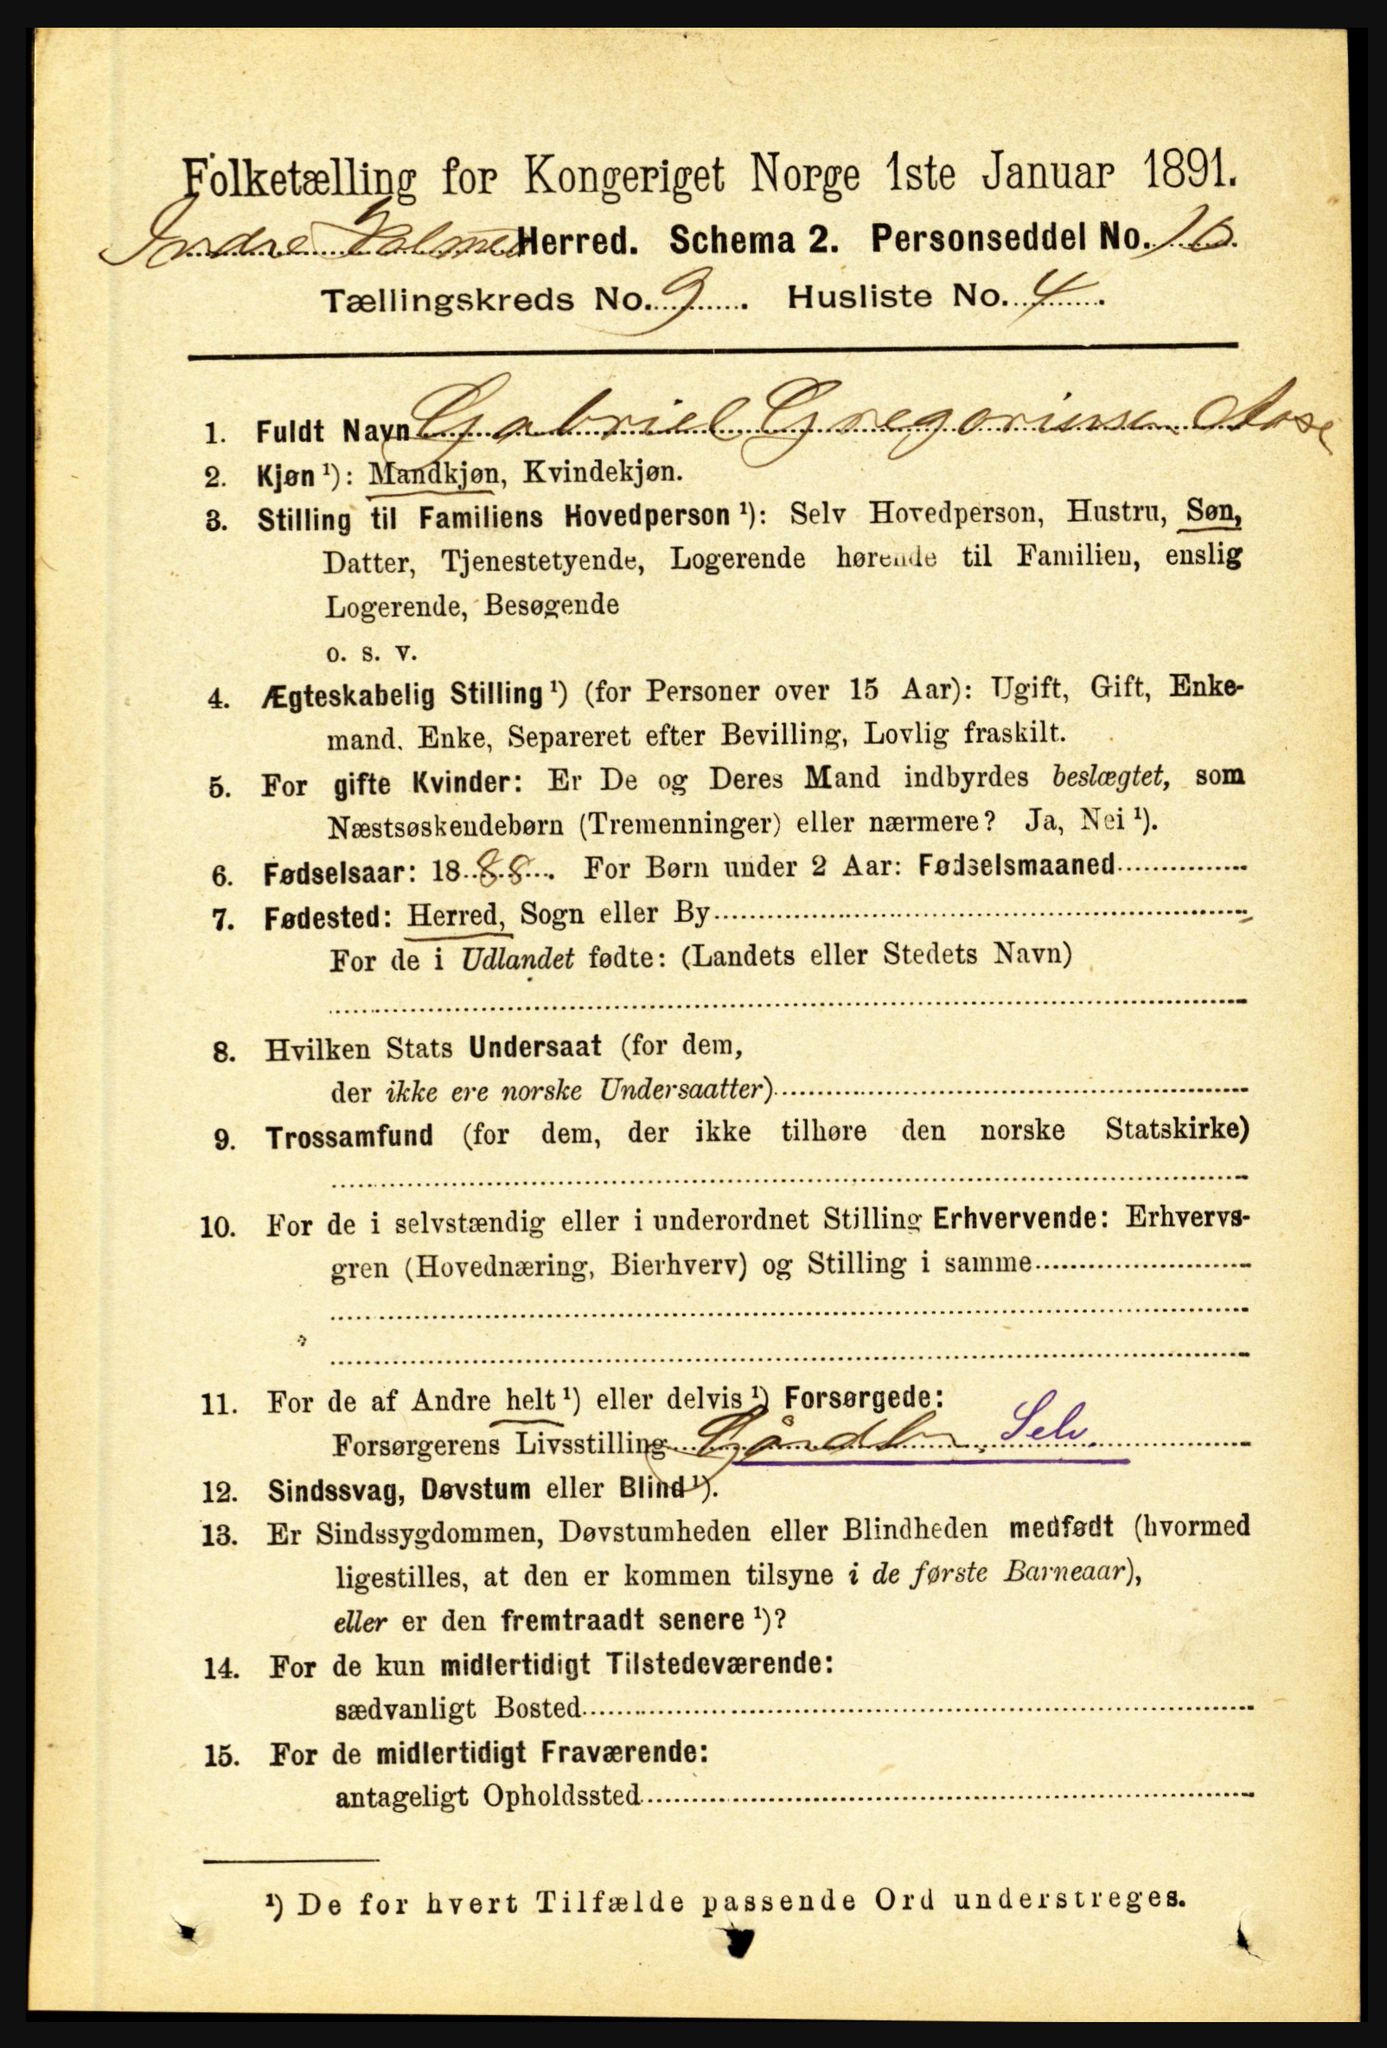 Folketælling for Kongeriget Norge 1ste Januar 1891.
Indre Holmedal Herred. Schema 2. Personseddel No. 10.
Tællingskreds No. 9. Husliste No. 4.
1. Fuldt Navn Gabriel Gregoriussen Aase
2. Kjøn ¹): Mandkjøn, Kvindekjøn.
3. Stilling til Familiens Hovedperson ¹): Selv Hovedperson, Hustru, Søn,
Datter, Tjenestetyende, Logerende hørende til Familien, enslig
Logerende, Besøgende
o. s. v.
4. Ægteskabelig Stilling ¹) (for Personer over 15 Aar): Ugift, Gift, Enke-
mand, Enke, Separeret efter Bevilling, Lovlig fraskilt.
5. For gifte Kvinder: Er De og Deres Mand indbyrdes beslægtet, som
Næstsøskendebørn (Tremenninger) eller nærmere? Ja, Nei ¹).
6. Fødselsaar: 1888. For Børn under 2 Aar: Fødselsmaaned
7. Fødested: Herred, Sogn eller By
For de i Udlandet fødte: (Landets eller Stedets Navn)
8. Hvilken Stats Undersaat (for dem,
der ikke ere norske Undersaatter)
9. Trossamfund (for dem, der ikke tilhøre den norske Statskirke)
10. For de i selvstændig eller i underordnet Stilling Erhvervende: Erhvervs-
gren (Hovednæring, Bierhverv) og Stilling i samme
11. For de af Andre helt ¹) eller delvis ¹) Forsørgede:
Forsørgerens Livsstilling Gårdbr. Selv.
12. Sindssvag, Døvstum eller Blind ¹).
13. Er Sindssygdommen, Døvstumheden eller Blindheden medfødt (hvormed
ligestilles, at den er kommen tilsyne i de første Barneaar),
eller er den fremtraadt senere ¹)?
14. For de kun midlertidigt Tilstedeværende:
sædvanligt Bosted
15. For de midlertidigt Fraværende:
antageligt Opholdssted
¹) De for hvert Tilfælde passende Ord understreges.